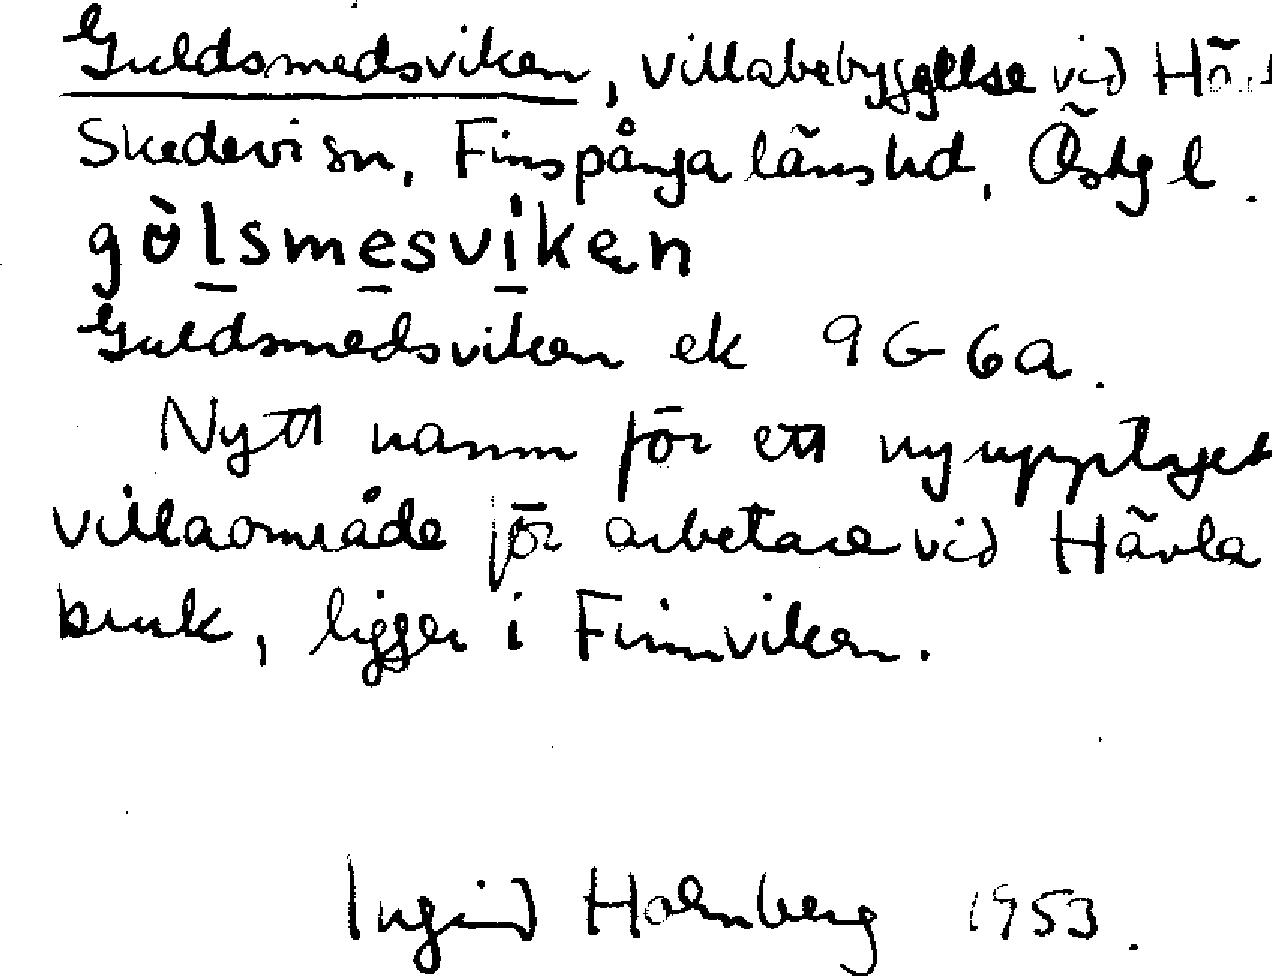 Guldsmedsviken, villabebyggelse vid
Skedevi sn, Finspånga länshd, Östgl.
gùlsmesviken
Guldsmedsviken ek 9G6a.
Nytt namn för ett nyupptaget
villaområde för arbetare vid Hävla
bruk, ligger i Finnviken.
Ingrid Holmberg 1953.